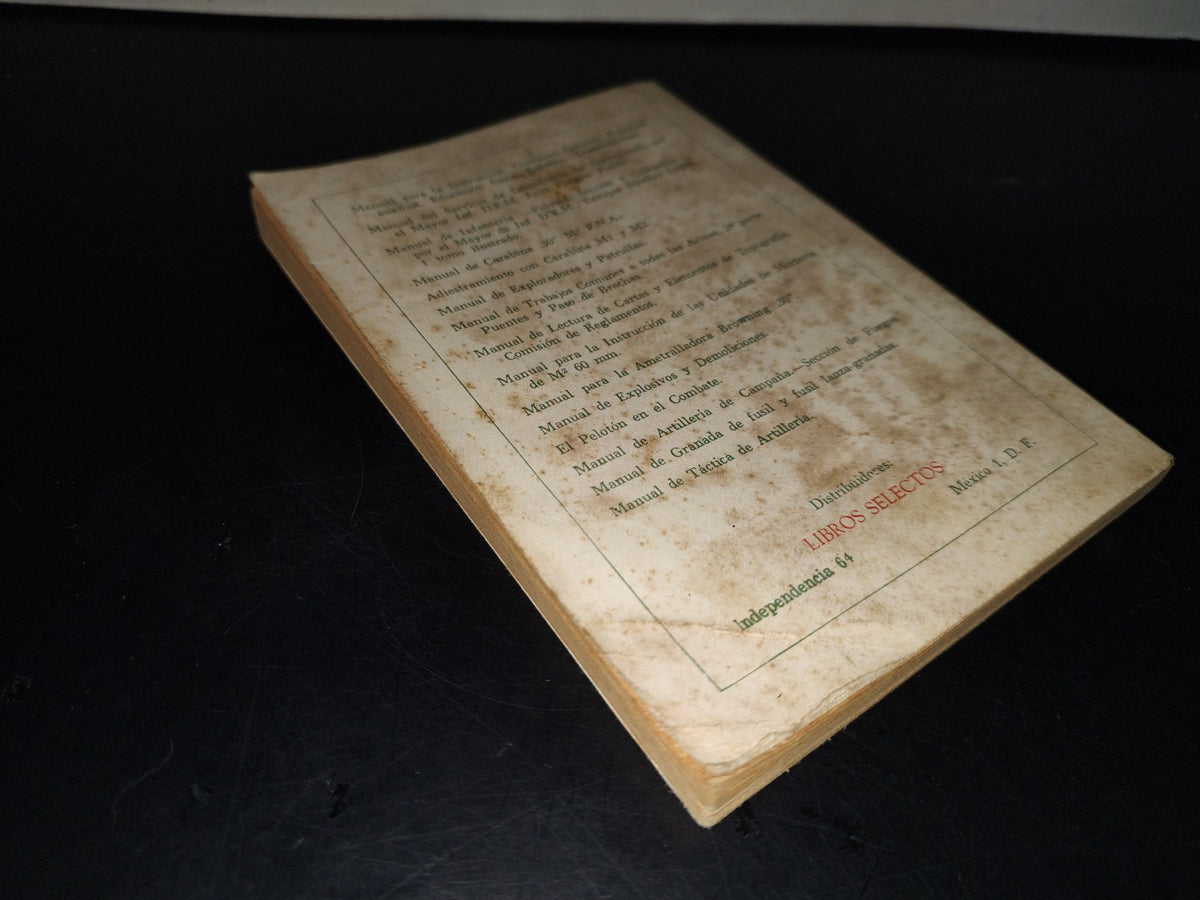 Manual para la
Manual del Servicio de
el Mayor Inf. D.E.M. Tomás
Manual de Infantería
por el Mayor de Inf. D.E.M. Enrique
1 tomo ilustrado.
Manual de Carabina 30" M² P.N.A.
Adiestramiento con Carabina M1 y M2.
Manual de Exploradores y Patrullas.
Manual de Trabajos Comunes a todas las Armas, 2ª parte
Puentes y Paso de Brechas.
Manual de Lectura de Cartas y Elementos de Topografía
Comisión de Reglamentos.
Manual para la Instrucción de las Unidades de Morteros
de M² 60 mm.
Manual para la Ametralladora Browning 30".
Manual de Explosivos y Demoliciones.
El Pelotón en el Combate.
Manual de Artillería de Campaña.—Sección de Fuegos
Manual de Granada de fusil y fusil lanza-granadas.
Manual de Táctica de Artillería.
Distribuidores:
LIBROS SELECTOS
Independencia 64 México 1, D. F.